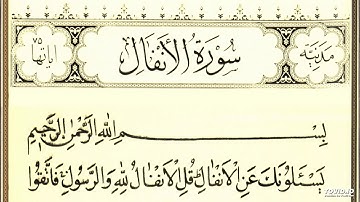 مدنية سورة الأنفال آياتها ٧٥
بِسْمِ اللهِ الرَّحْمٰنِ الرَّحِيْمِ
يَسْـَٔلُوْنَكَ عَنِ الْاَنْفَالِؕ قُلِ الْاَنْفَالُ لِلّٰهِ وَالرَّسُوْلِۚ فَاتَّقُوا
TOVID.IO